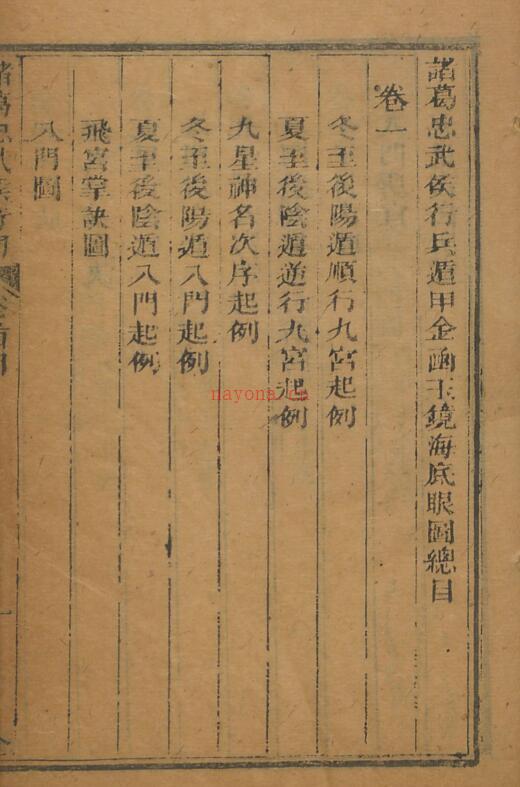 諸葛忠武侯行兵遁甲金函玉鏡海底眼圖總目
卷一
冬至後陽遁順行九宮起例
夏至後陰遁逆行九宮起例
九星神名次序起例
冬至後陽遁八門起例
夏至後陰遁八門起例
飛宮掌訣圖
八門圖
諸葛忠武侯行
nayona.cn